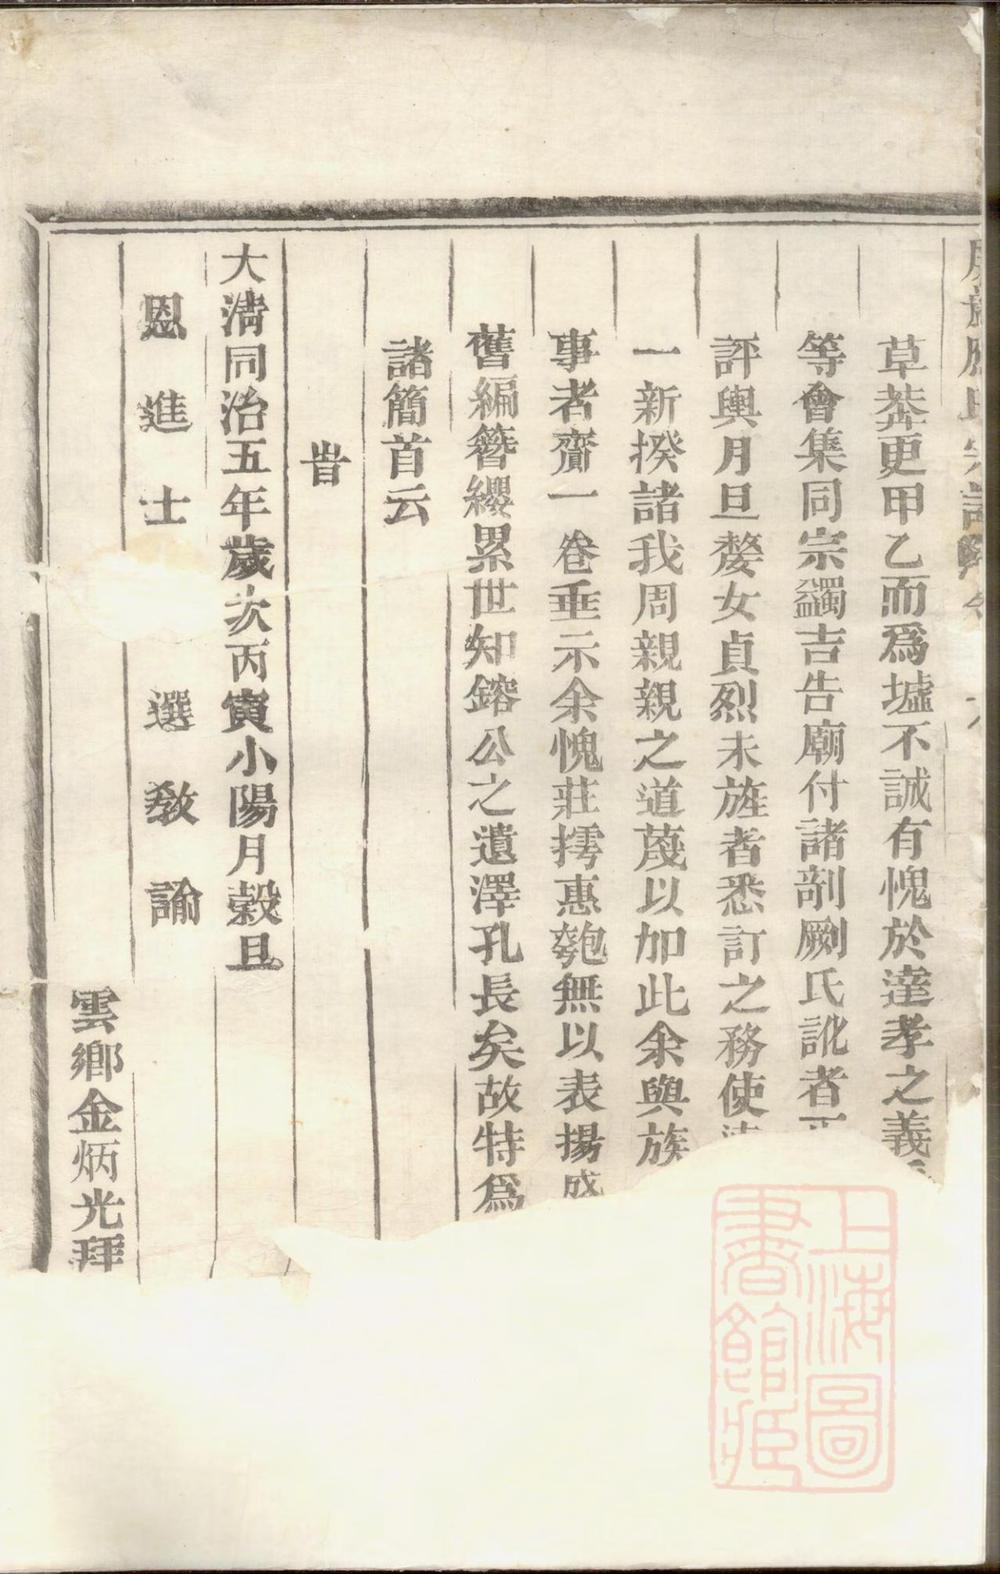 氏宗譜
草莽更甲乙而爲墟不誠有愧於達孝之義
等會集同宗蠲吉告廟付諸剞劂氏訛者
評輿月旦嫠女貞烈未旌者悉訂之務使
一新揆諸我周親親之道蔑以加此余與族
事者齎一卷垂示余愧莊摴惠匏無以表揚盛
舊編簪纓累世知鎔公之遺澤孔長矣故特爲
諸簡首云
旹
大淸同治五年歲次丙寅小陽月穀旦
恩進士選教諭
雲鄉金炳光拜
上海圖書館藏